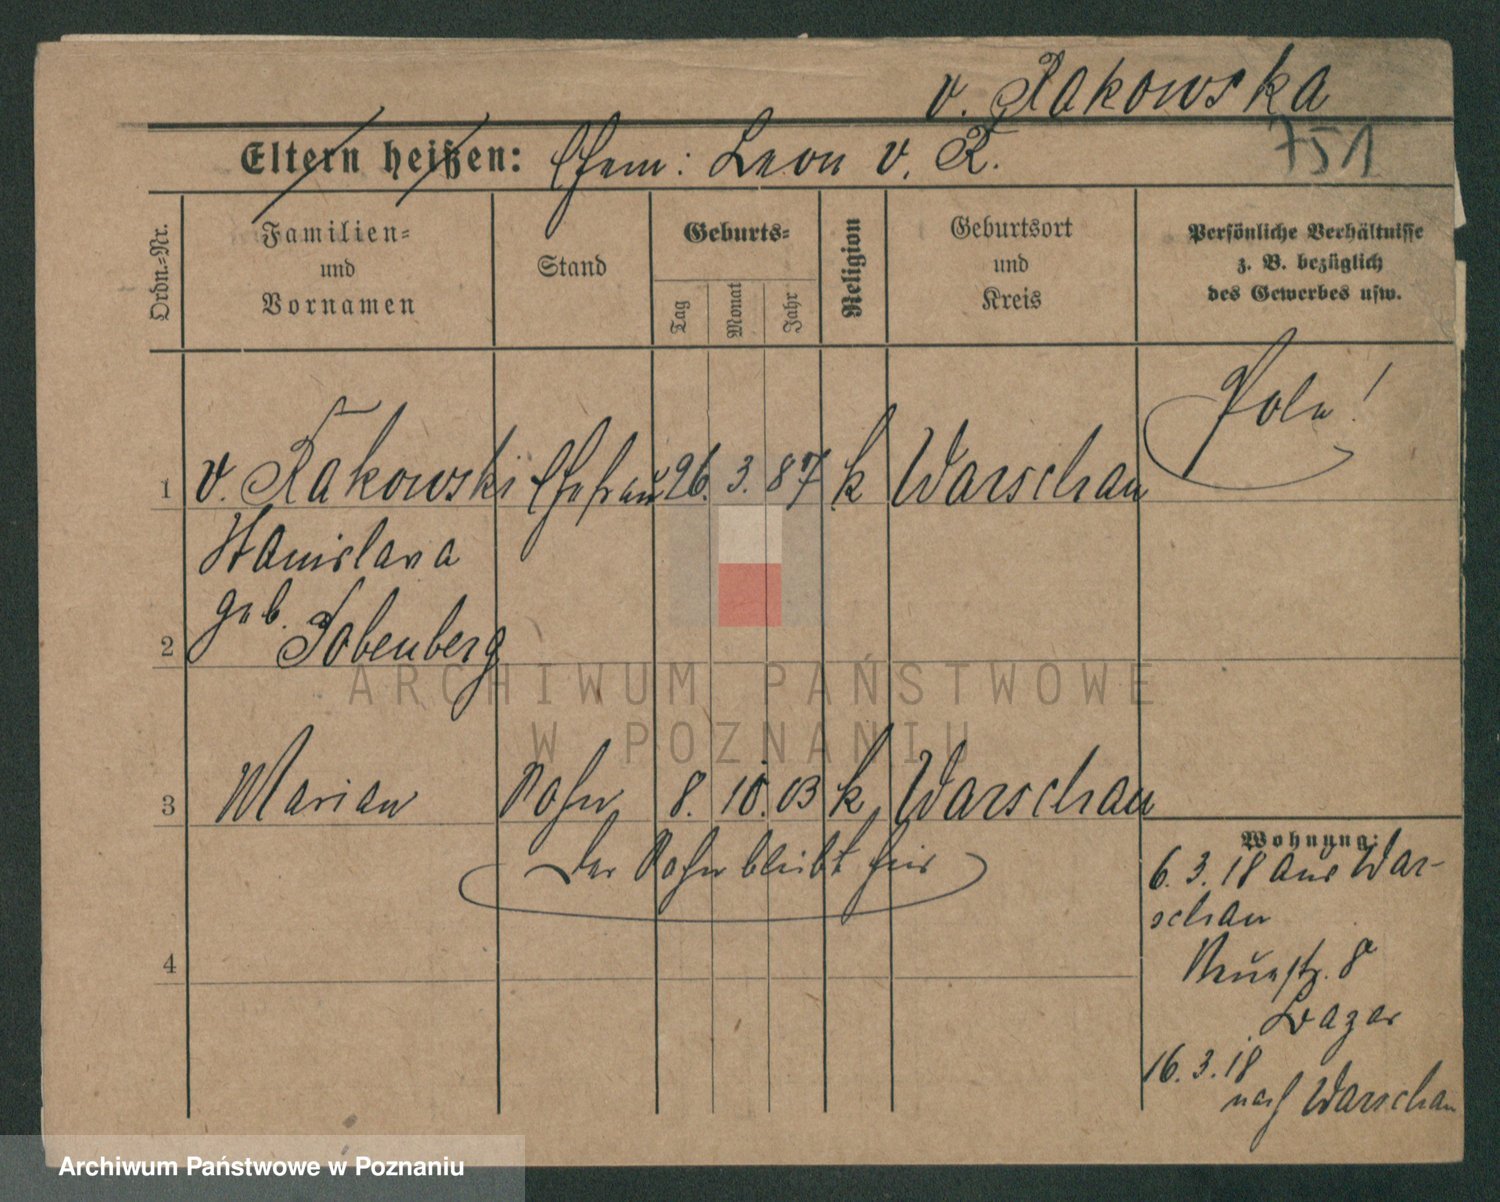 v. Rakowska
751
Eltern heißen: Ehem: Leon v. R.
Ordn.-Nr.
Familien- und Vornamen
Stand
Geburts-
Tag
Monat
Jahr
Religion
Geburtsort und Kreis
Persönliche Verhältnisse
z. B. bezüglich
des Gewerbes usw.
Pole!
1 v. Rakowski Ehefrau 26. 3. 87 k Warschau
Stanislava
geb.
2
3 Marian Sohn 8. 10. 03 k Warschau
Der Sohn bleibt hier
4
Wohnung:
6. 3. 18 aus War-
schau
Neuestr. 8
Lazar
16. 3. 18
nach Warschau
ARCHIWUM PAŃSTWOWE
W POZNANIU
Archiwum Państwowe w Poznaniu